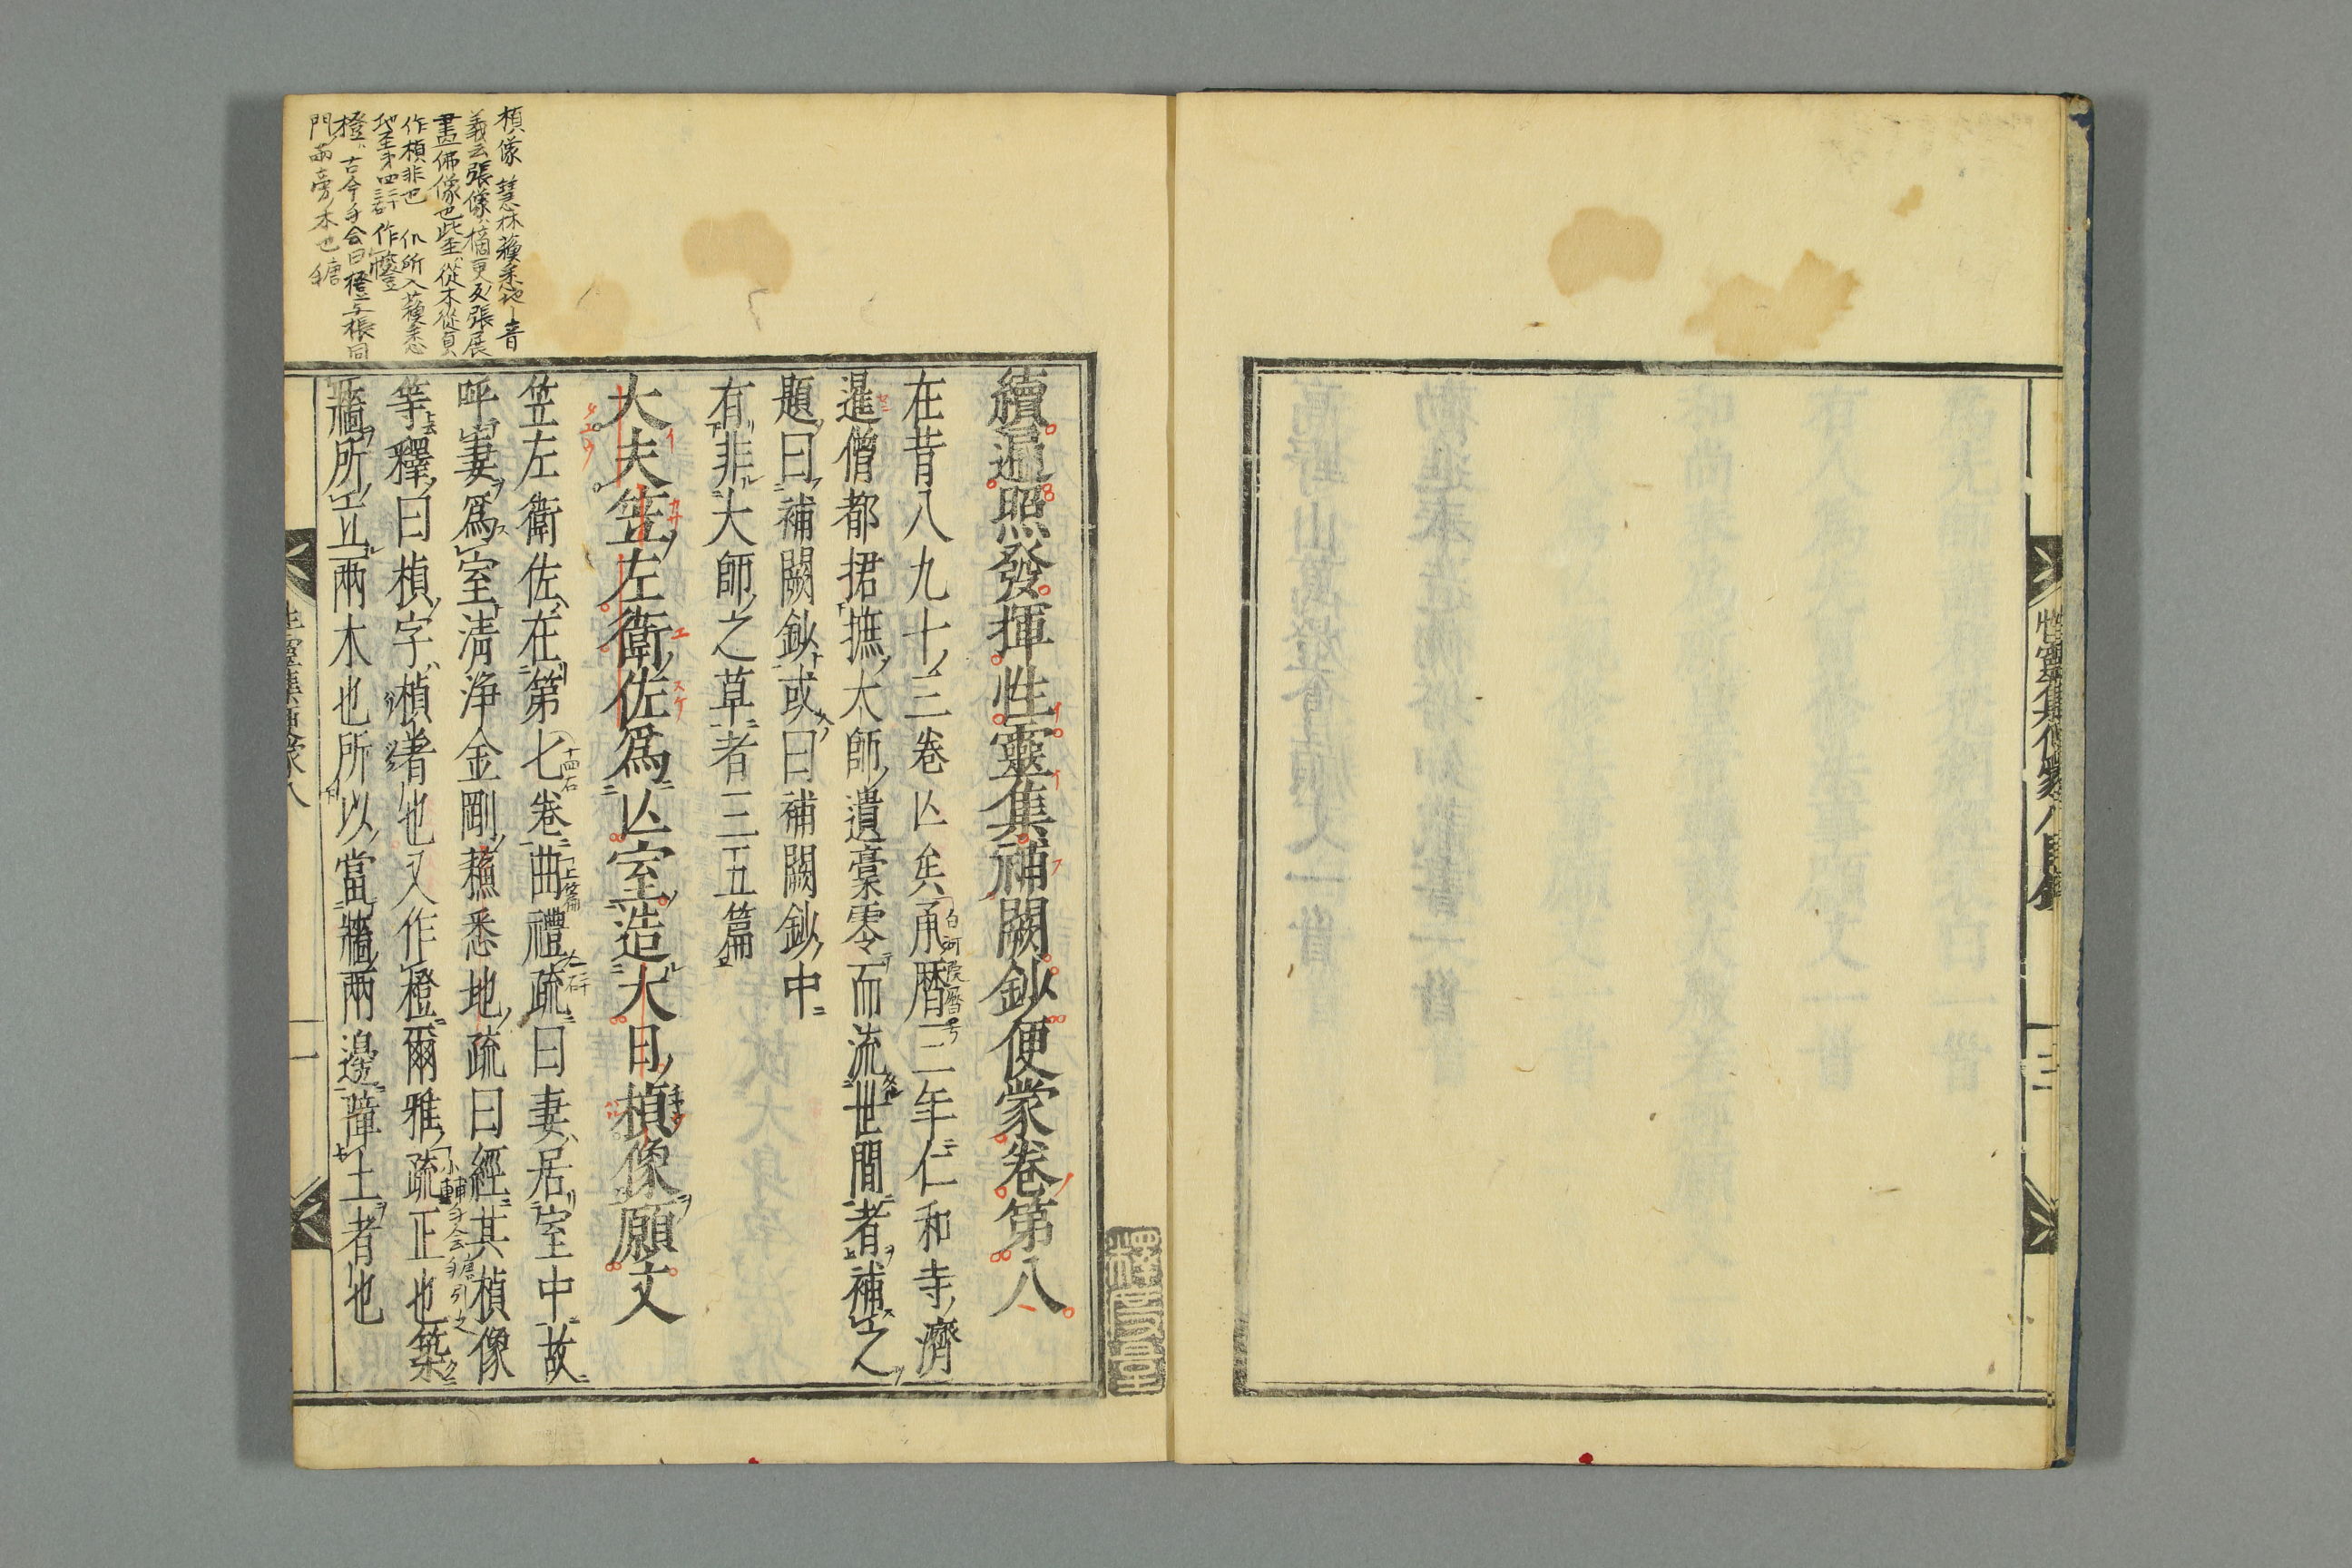 性靈集便蒙八目錄
二
續遍照發揮性靈集補闕鈔便蒙卷第八
在昔八九十三卷亾矣承曆三年仁和寺濟
白河院曆号
暹僧都捃摭大師遺稾零而流世間者補之
題曰補闕鈔或曰補闕鈔中
有非大師之草者三五篇
大夫笠左衛佐爲亾室造大日楨像願文
笠左衛佐在第七卷曲禮疏曰妻居室中故
十四右
上篇
呼妻爲室清淨金剛蘓悉地疏曰經其楨像
等釋曰楨字楨者也又作橙爾雅疏正也築
牆所立兩木也所以當牆兩邊障土者也
性靈集便蒙八
一
楨像 慧林蘓悉地音
義云張像摘更反張展
畫佛像也此至從木從貞
作楨非也
門兩旁木也